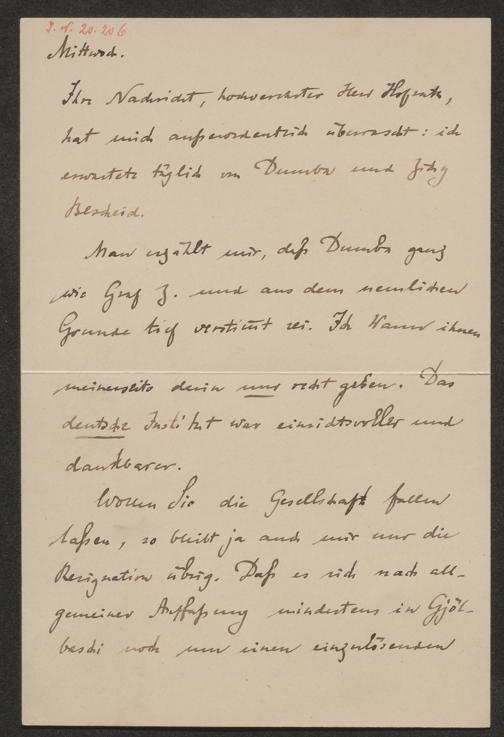 I. N. 20.206
Mittwoch.
Ihre Nachricht, hochverehrter Herr Hofrath,
hat mich außerordentlich überrascht: ich
erwartete täglich von Dumba und Zichy
Bescheid.
Man erzählt mir, daß Dumba ganz
wie Graf Z. und aus dem nemlichen
Grunde tief verstimt sei. Ich kann ihnen
meinerseits darin nur recht geben. Das
deutsche Institut war einsichtsvoller und
dankbarer.
Wollen Sie die Gesellschaft fallen
laßen, so bleibt ja auch mir nur die
Resignation übrig. Daß es sich nach all-
gemeiner Auffaßung mindestens in Gjöl-
baschi noch um einen einzulösenden